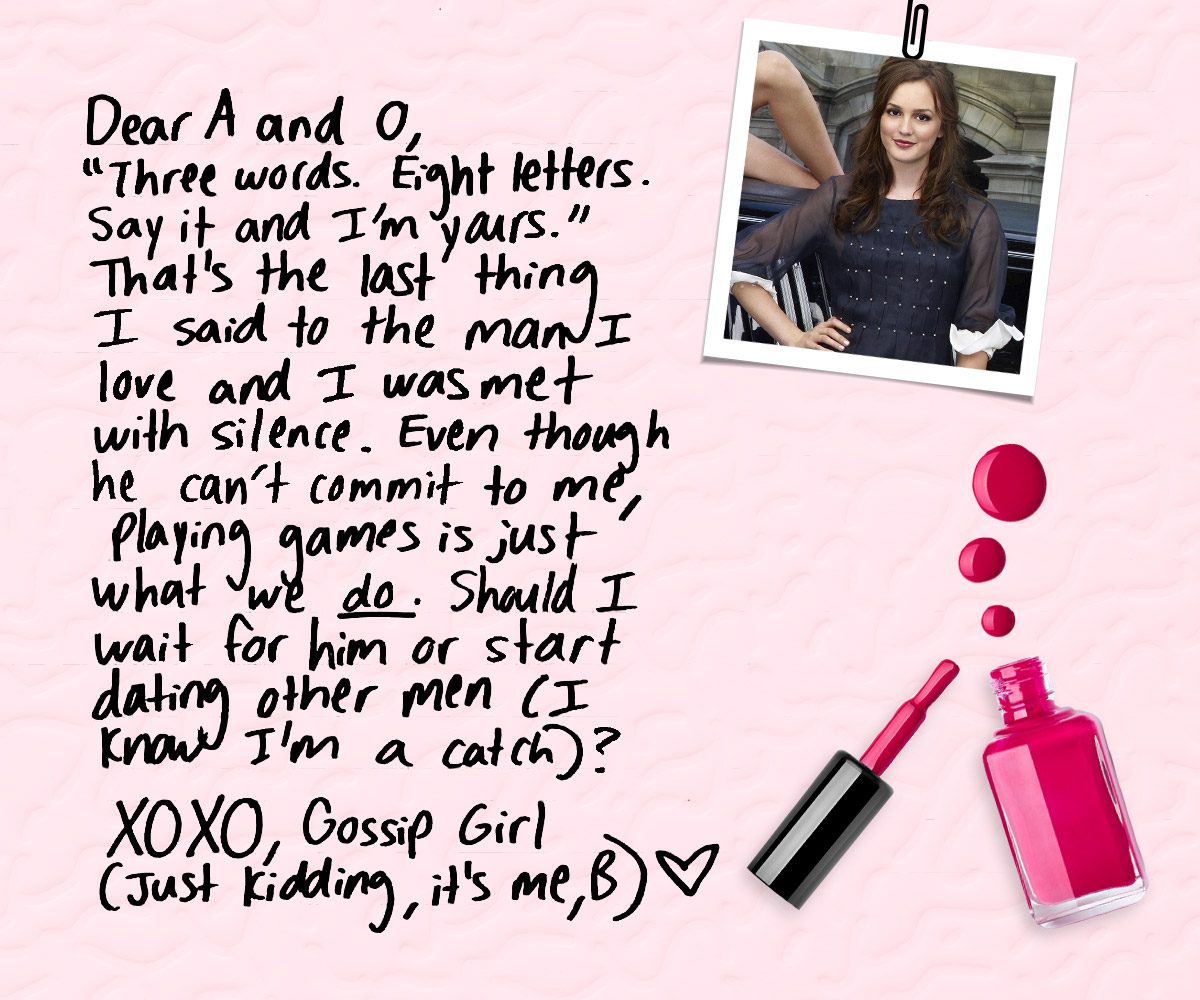 Dear A and O,
"Three words. Eight letters.
Say it and I'm yours."
That's the last thing
I said to the man I
love and I was met
with silence. Even though
he can't commit to me,
playing games is just
what we do. Should I
wait for him or start
dating other men (I
know I'm a catch)?
XOXO, Gossip Girl
(Just kidding, it's me, B) ♡